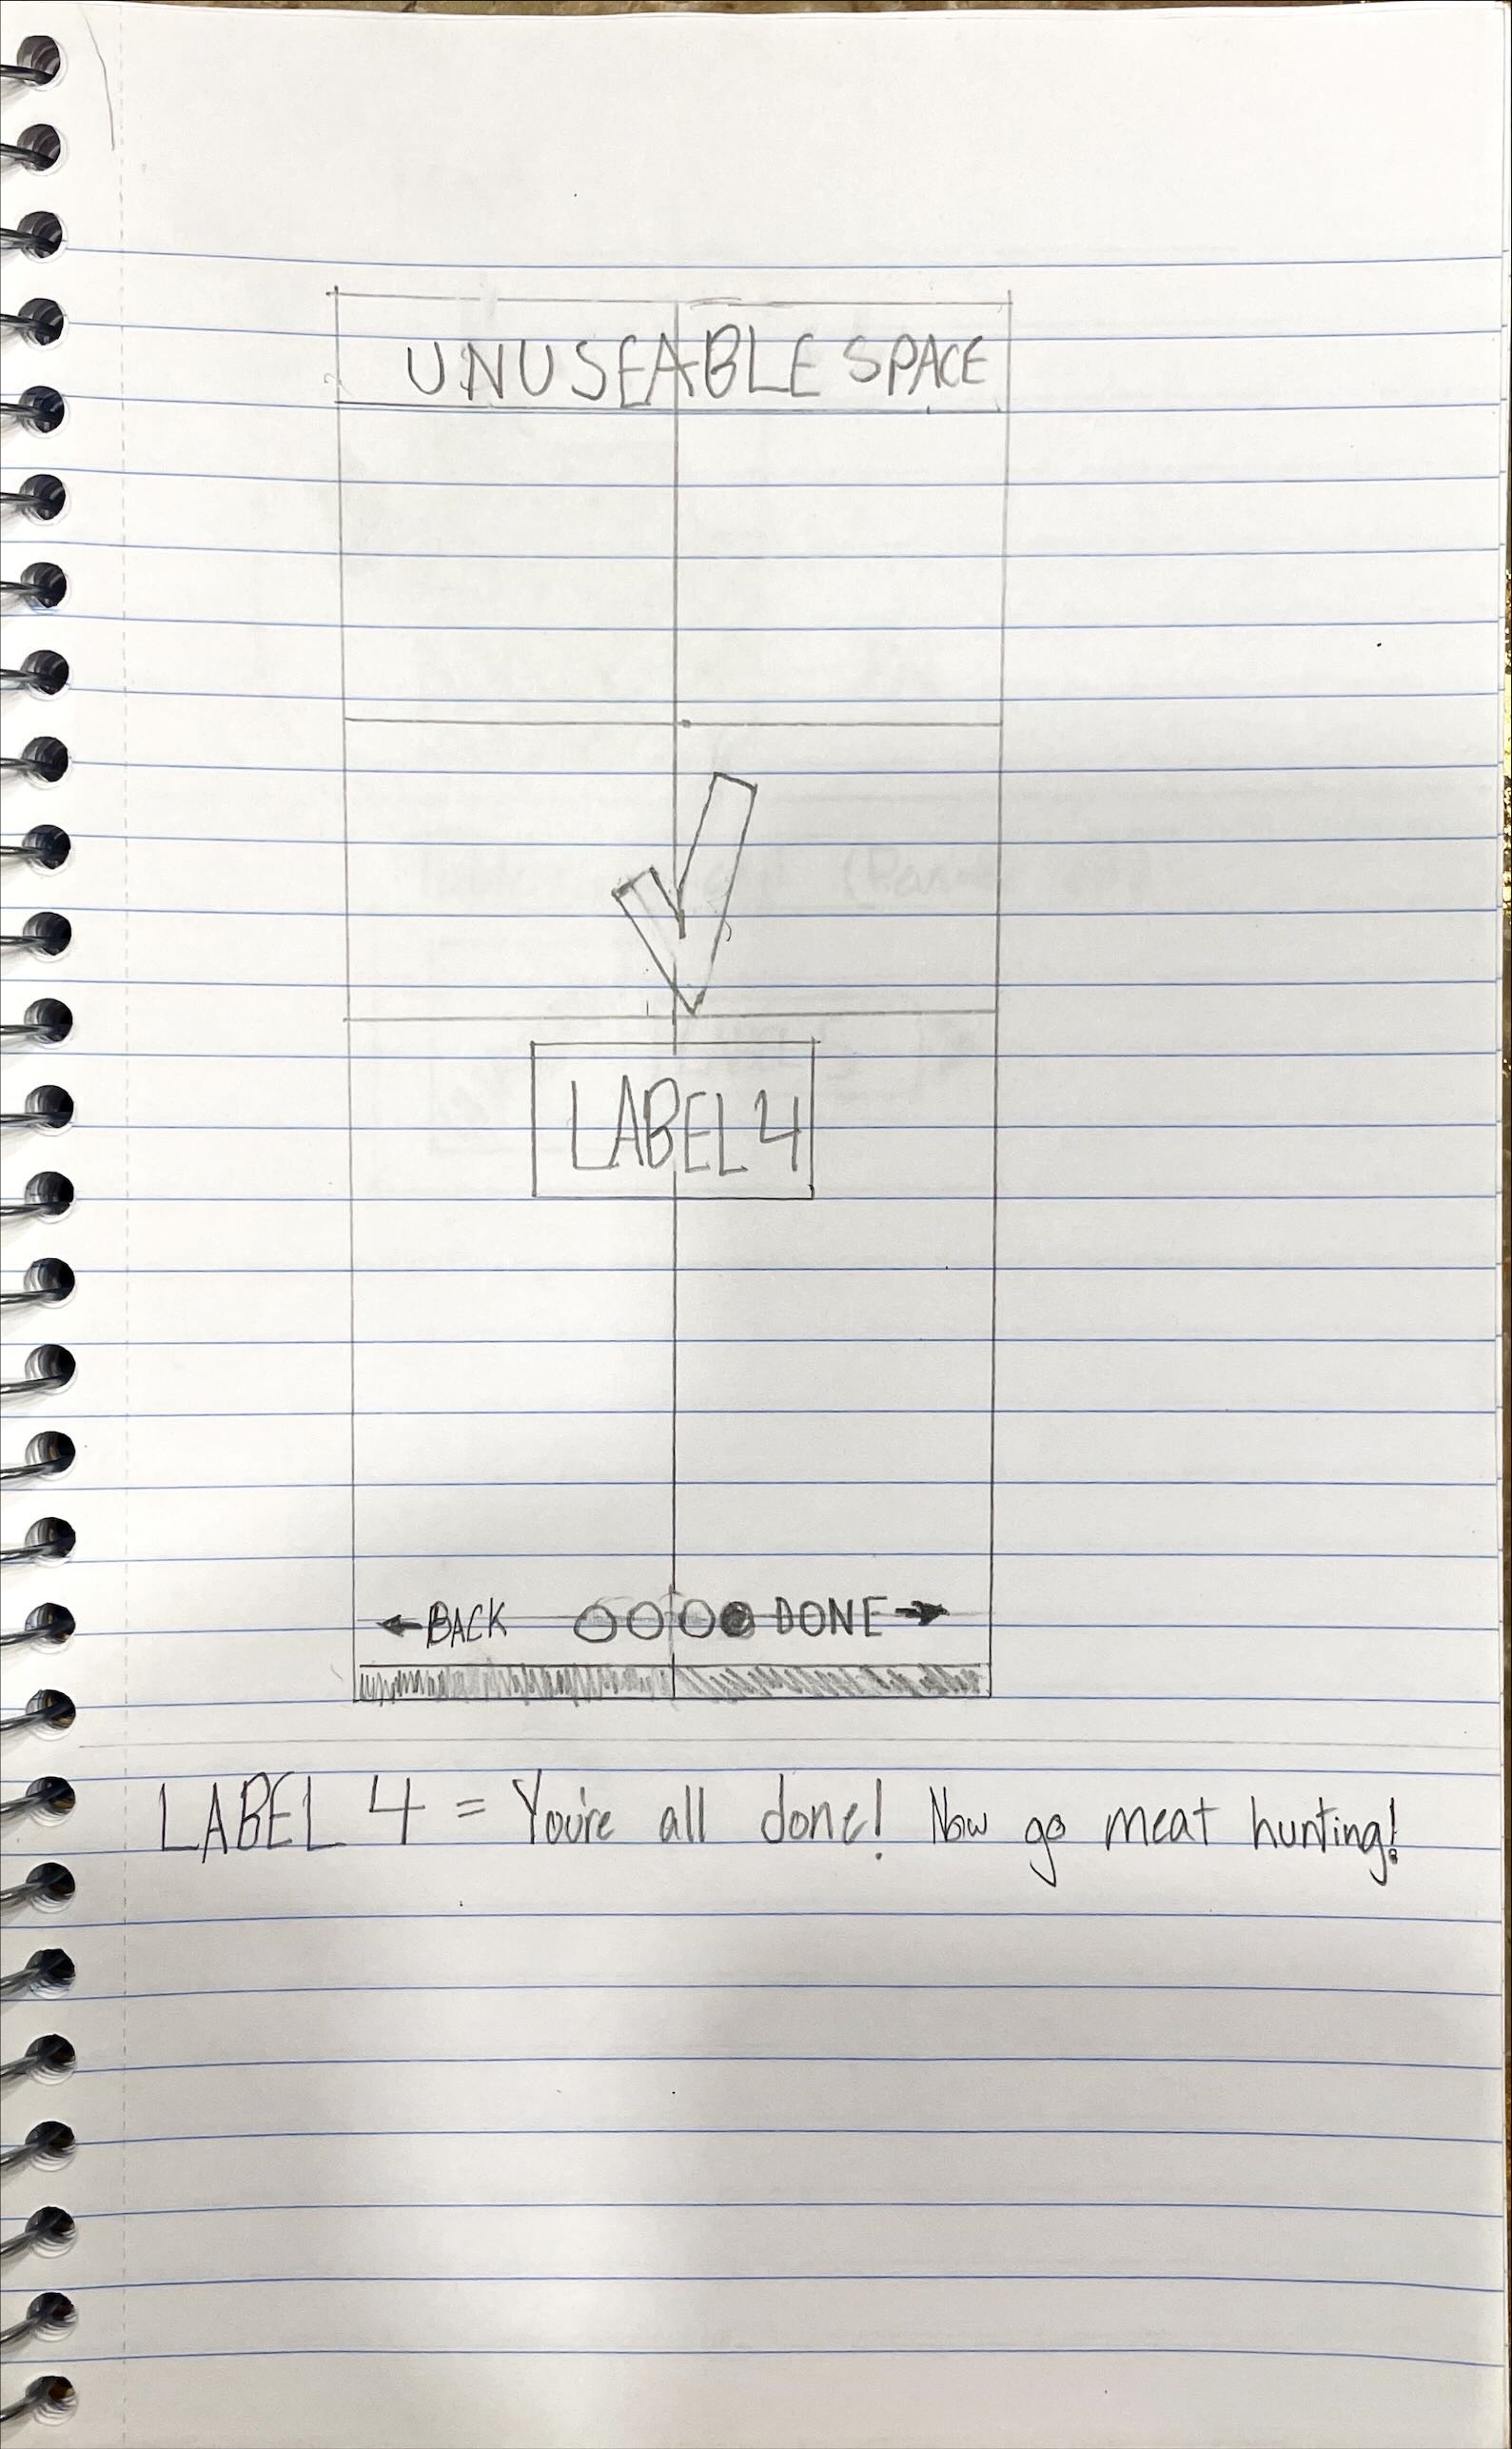 UNUSEABLE SPACE
LABEL 4
BACK DONE
LABEL 4 = You're all done! Now go meat hunting!